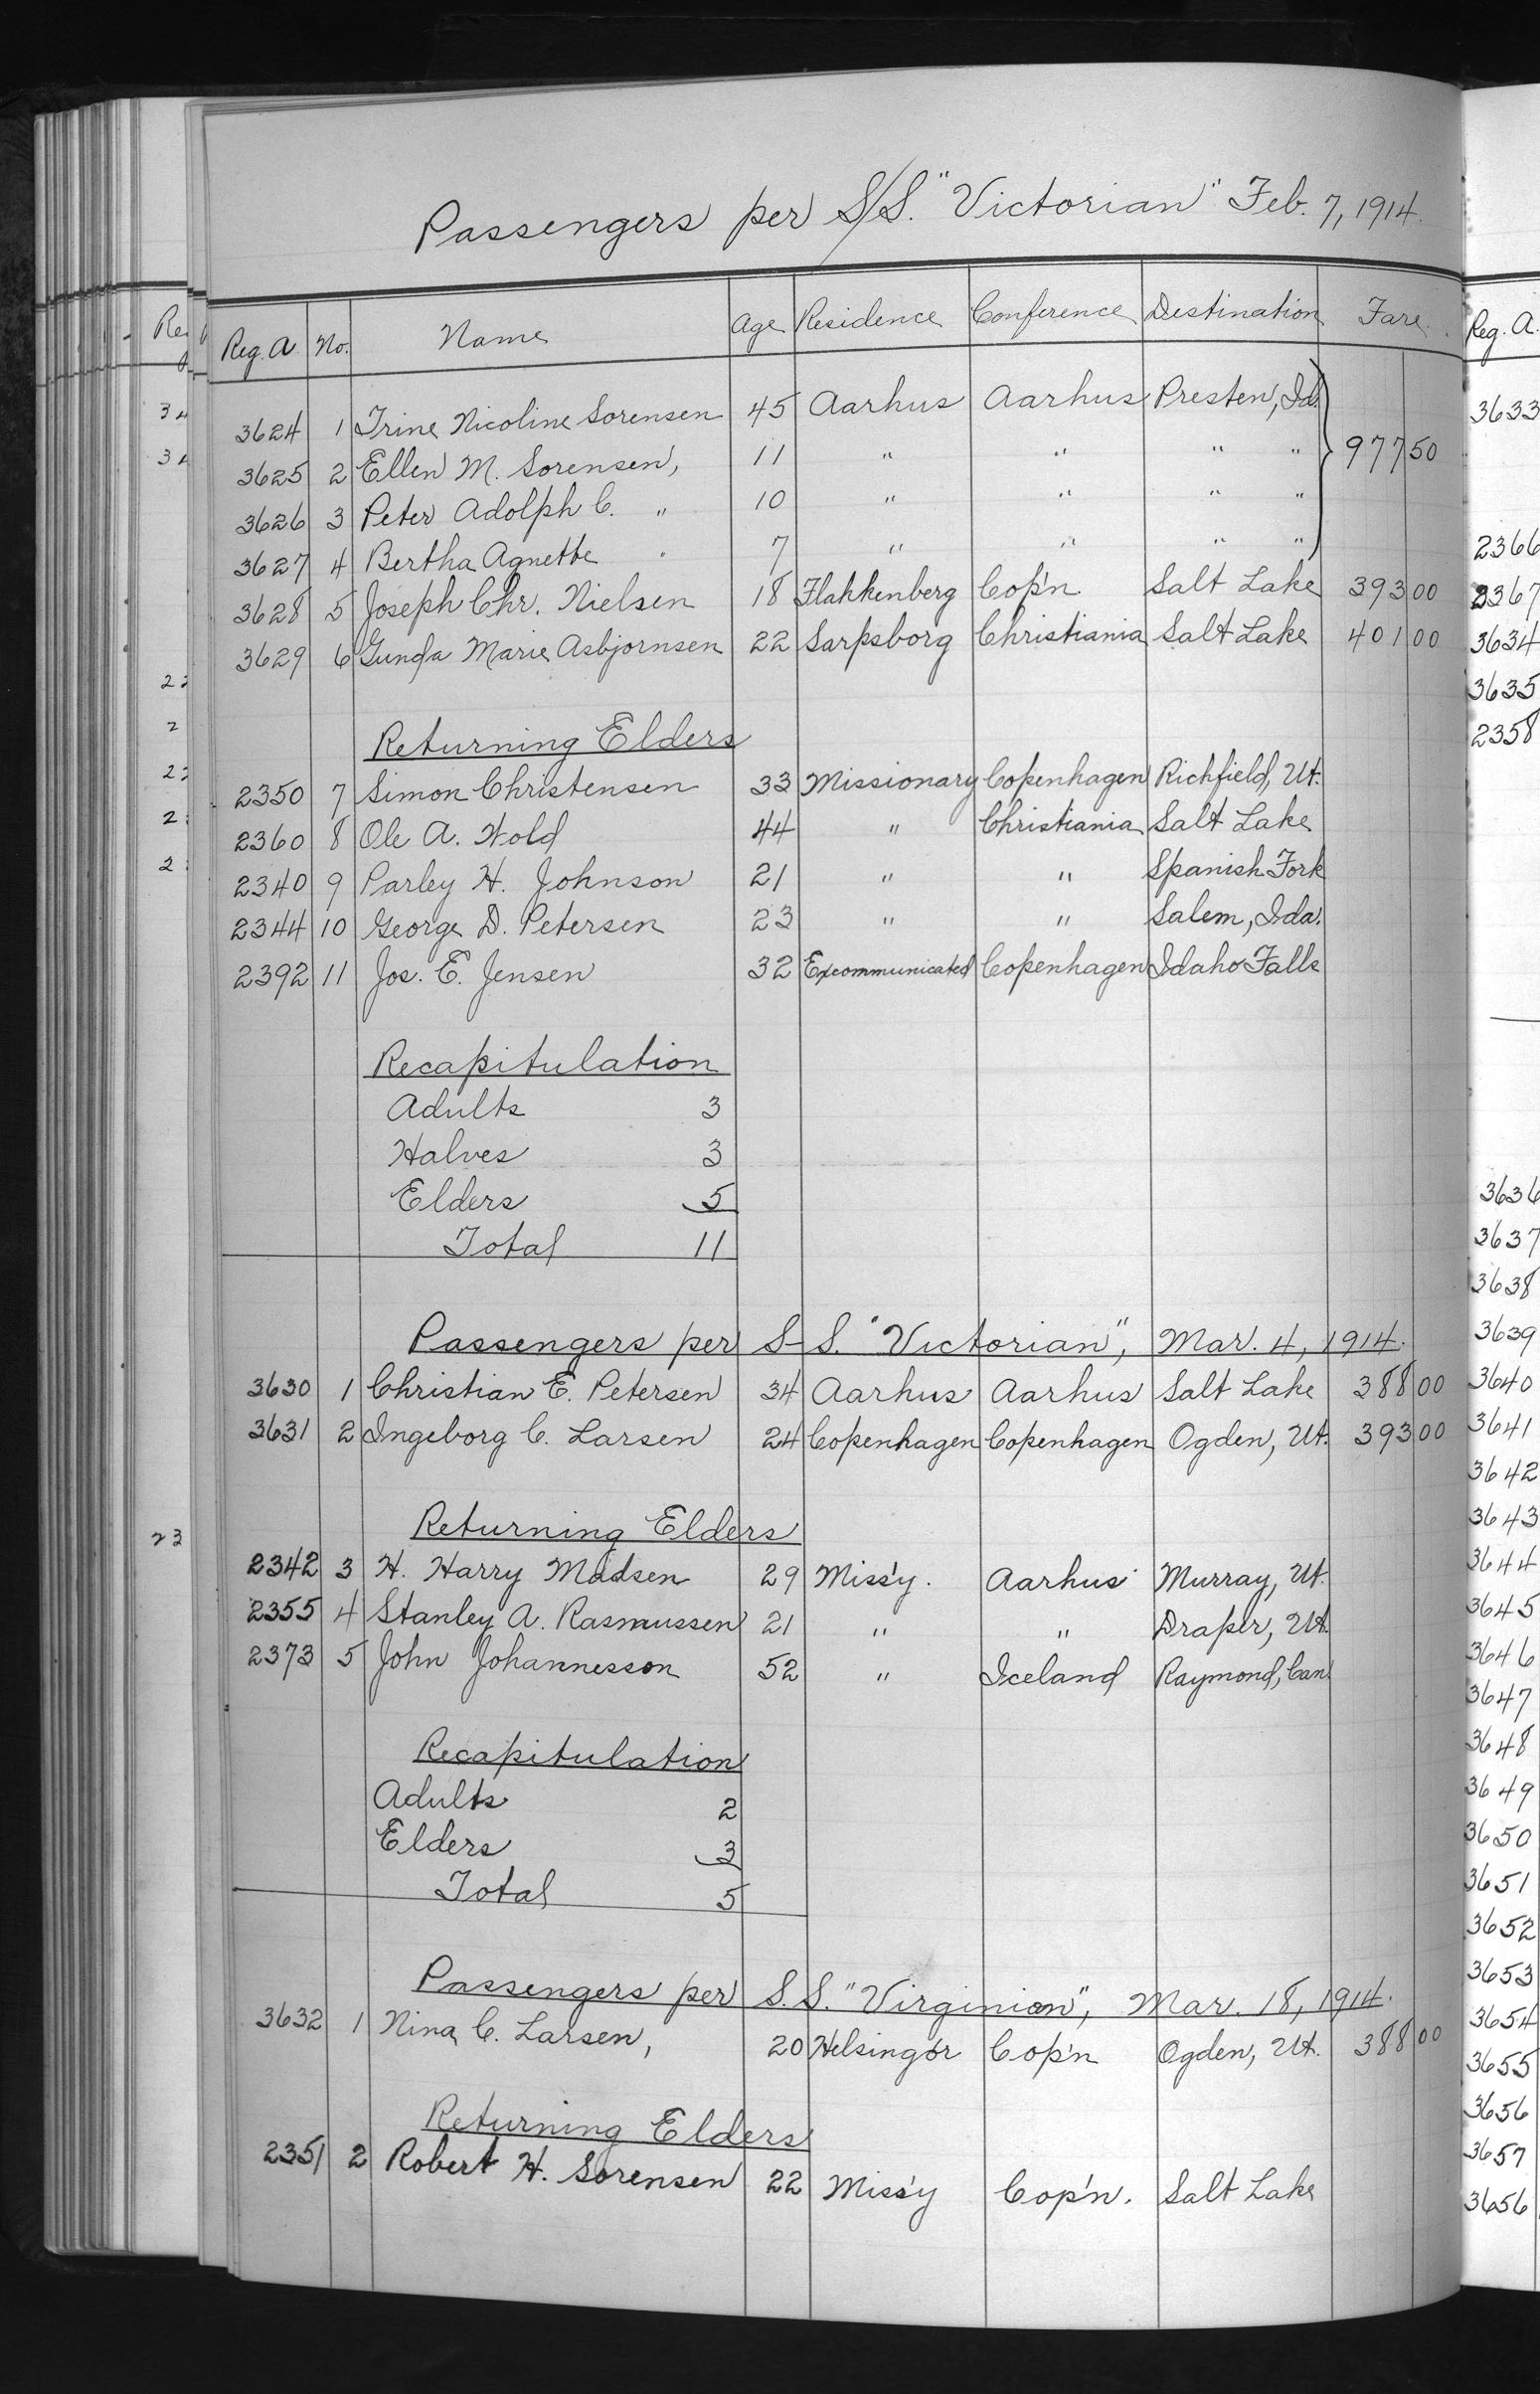 Passengers per S/S. "Victorian" Feb. 7, 1914.
Reg. A No. Name Age Residence Conference Destination Fare.
3624 1 Trine Nicoline Sorensen 45 Aarhus Aarhus Presten, Id.
3625 2 Ellen M. Sorensen, 11 " " " " 977 50
3626 3 Peter Adolph C. " 10 " " " "
3627 4 Bertha Agnethe " 7 " " " "
3628 5 Joseph Chr. Nielsen 18 Flakkenberg Cop'n Salt Lake 393 00
3629 6 Gunda Marie Asbjornsen 22 Sarpsborg Christiania Salt Lake 401 00
Returning Elders
2350 7 Simon Christensen 33 Missionary Copenhagen Richfield, Ut.
2360 8 Ole A. Wold 44 " Christiania Salt Lake
2340 9 Parley H. Johnson 21 " " Spanish Fork
2344 10 George D. Petersen 23 " " Salem, Ida.
2392 11 Jos. E. Jensen 32 Excommunicated Copenhagen Idaho Falls
Recapitulation
Adults 3
Halves 3
Elders 5
Total 11
Passengers per S-S. "Victorian", Mar. 4, 1914.
3630 1 Christian E. Petersen 34 Aarhus Aarhus Salt Lake 388 00
3631 2 Ingeborg C. Larsen 24 Copenhagen Copenhagen Ogden, Ut. 393 00
Returning Elders
2342 3 H. Harry Madsen 29 Miss'y. Aarhus Murray, Ut.
2355 4 Stanley A. Rasmussen 21 " " Draper, Ut.
2373 5 John Johannesson 52 " Iceland Raymond, Can.
Recapitulation
Adults 2
Elders 3
Total 5
Passengers per S.S. "Virginian", Mar. 18, 1914.
3632 1 Nina C. Larsen, 20 Helsingör Cop'n Ogden, Ut. 388 00
Returning Elders
2351 2 Robert H. Sorensen 22 Miss'y Cop'n. Salt Lake
Reg. A.
3633
2366
2367
3634
3635
2358
3636
3637
3638
3639
3640
3641
3642
3643
3644
3645
3646
3647
3648
3649
3650
3651
3652
3653
3654
3655
3656
3657
3656